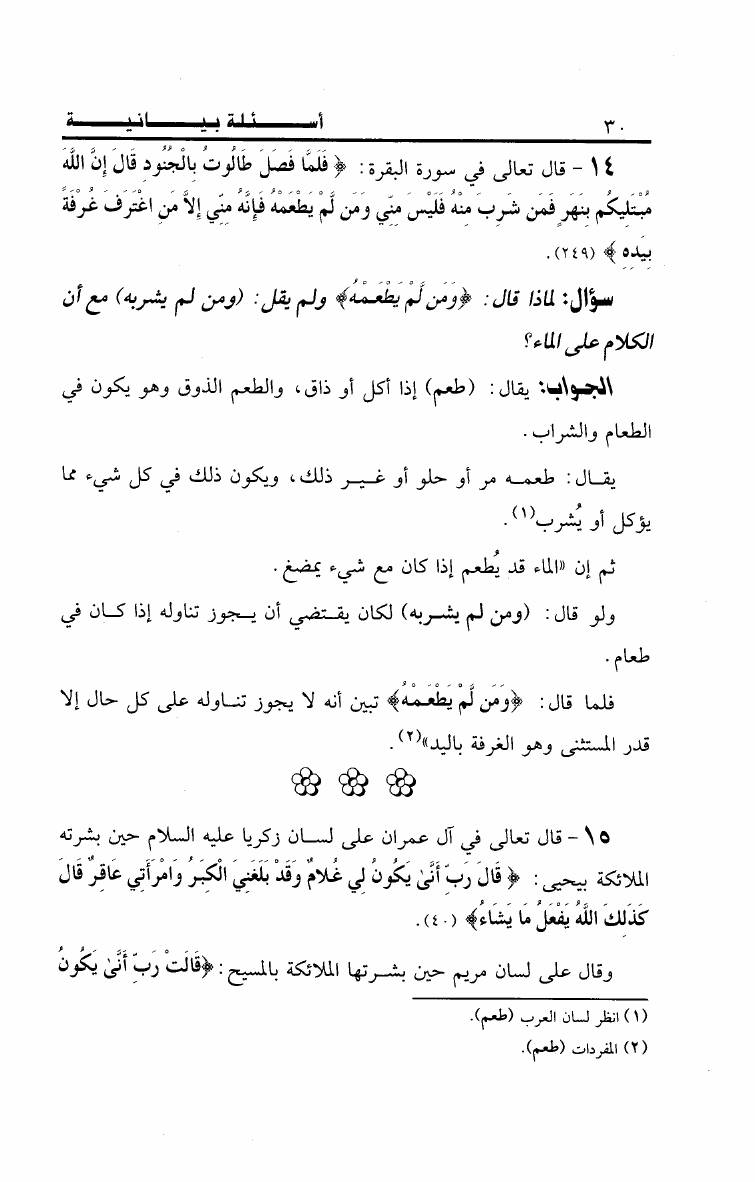 ٣٠ أسئلة بيانية
١٤ - قال تعالى في سورة البقرة: ﴿ فَلَمَّا فَصَلَ طَالُوتُ بِالْجُنُودِ قَالَ إِنَّ اللَّهَ
مُبْتَلِيكُم بِنَهَرٍ فَمَن شَرِبَ مِنْهُ فَلَيْسَ مِنِّي وَمَن لَّمْ يَطْعَمْهُ فَإِنَّهُ مِنِّي إِلاَّ مَنِ اغْتَرَفَ غُرْفَةً
بِيَدِهِ ﴾ (٢٤٩).
سؤال: لماذا قال: ﴿وَمَن لَّمْ يَطْعَمْهُ﴾ ولم يقل: (ومن لم يشربه) مع أن
الكلام على الماء؟
الجواب: يقال: (طعم) إذا أكل أو ذاق، والطعم الذوق وهو يكون في
الطعام والشراب.
يقال: طعمه مر أو حلو أو غير ذلك، ويكون ذلك في كل شيء مما
يؤكل أو يُشرب(١).
ثم إن «الماء قد يُطعم إذا كان مع شيء يمضغ.
ولو قال: (ومن لم يشربه) لكان يقتضي أن يجوز تناوله إذا كان في
طعام.
فلما قال: ﴿وَمَن لَّمْ يَطْعَمْهُ﴾ تبين أنه لا يجوز تناوله على كل حال إلا
قدر المستثنى وهو الغرفة باليد»(٢).
١٥ - قال تعالى في آل عمران على لسان زكريا عليه السلام حين بشرته
الملائكة بيحيى: ﴿ قَالَ رَبِّ أَنَّىٰ يَكُونُ لِي غُلامٌ وَقَدْ بَلَغَنِيَ الْكِبَرُ وَامْرَأَتِي عَاقِرٌ قَالَ
كَذَلِكَ اللَّهُ يَفْعَلُ مَا يَشَاءُ﴾ (٤٠).
وقال على لسان مريم حين بشرتها الملائكة بالمسيح: ﴿قَالَتْ رَبِّ أَنَّىٰ يَكُونُ
(١) انظر لسان العرب (طعم).
(٢) المفردات (طعم).